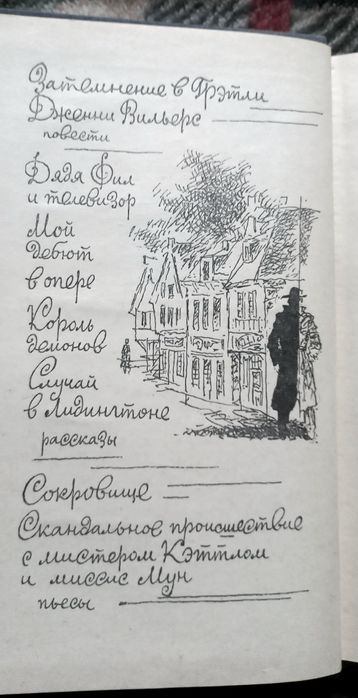 Затемнение в Грэтли
Дженни Вильерс
повести
Дядя Фил
и телевизор
Мой
дебют
в опере
Король
демонов
Случай
в Лидингтоне
рассказы
Сокровище
Скандальное происшествие
с мистером Кэттлом
и миссис Мун
пьесы